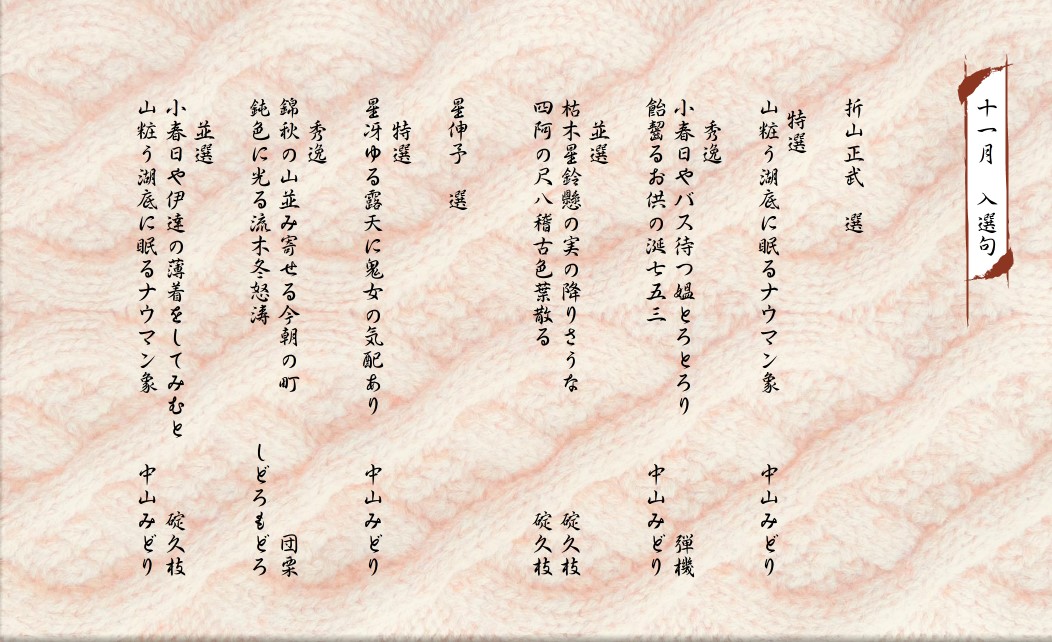 十一月　入選句
折山正武　選
特選
山粧う湖底に眠るナウマン象　中山みどり
秀逸
小春日やバス待つ媼とろとろり　弾機
飴齧るお供の涎七五三　中山みどり
並選
枯木星鈴懸の実の降りさうな　碇久枝
四阿の尺八稽古色葉散る　碇久枝
星伸子　選
特選
星冴ゆる露天に鬼女の気配あり　中山みどり
秀逸
錦秋の山並み寄せる今朝の町　団栗
鈍色に光る流木冬怒涛　しどろもどろ
並選
小春日や伊達の薄着をしてみむと　碇久枝
山粧う湖底に眠るナウマン象　中山みどり